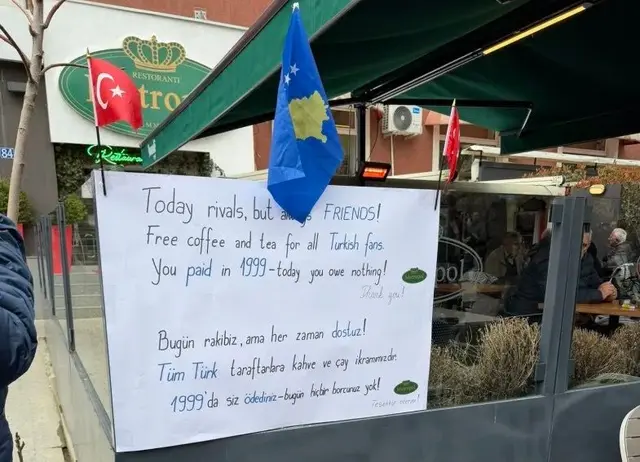 RESTORANTI
Restaura
84
Today rivals, but always FRIENDS!
Free coffee and tea for all Turkish fans.
You paid in 1999-today you owe nothing!
Thank you!
Bugün rakibiz, ama her zaman dostuz!
Tüm Türk taraftarlara kahve ve çay ikramımızdır.
1999'da siz ödediniz-bugün hiçbir borcunuz yok!